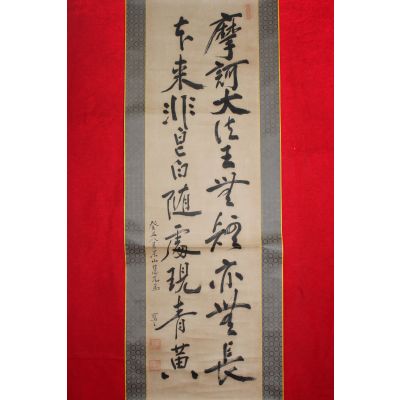 摩訶大法王無短亦無長
本来非皂白随處現青黄
癸丑